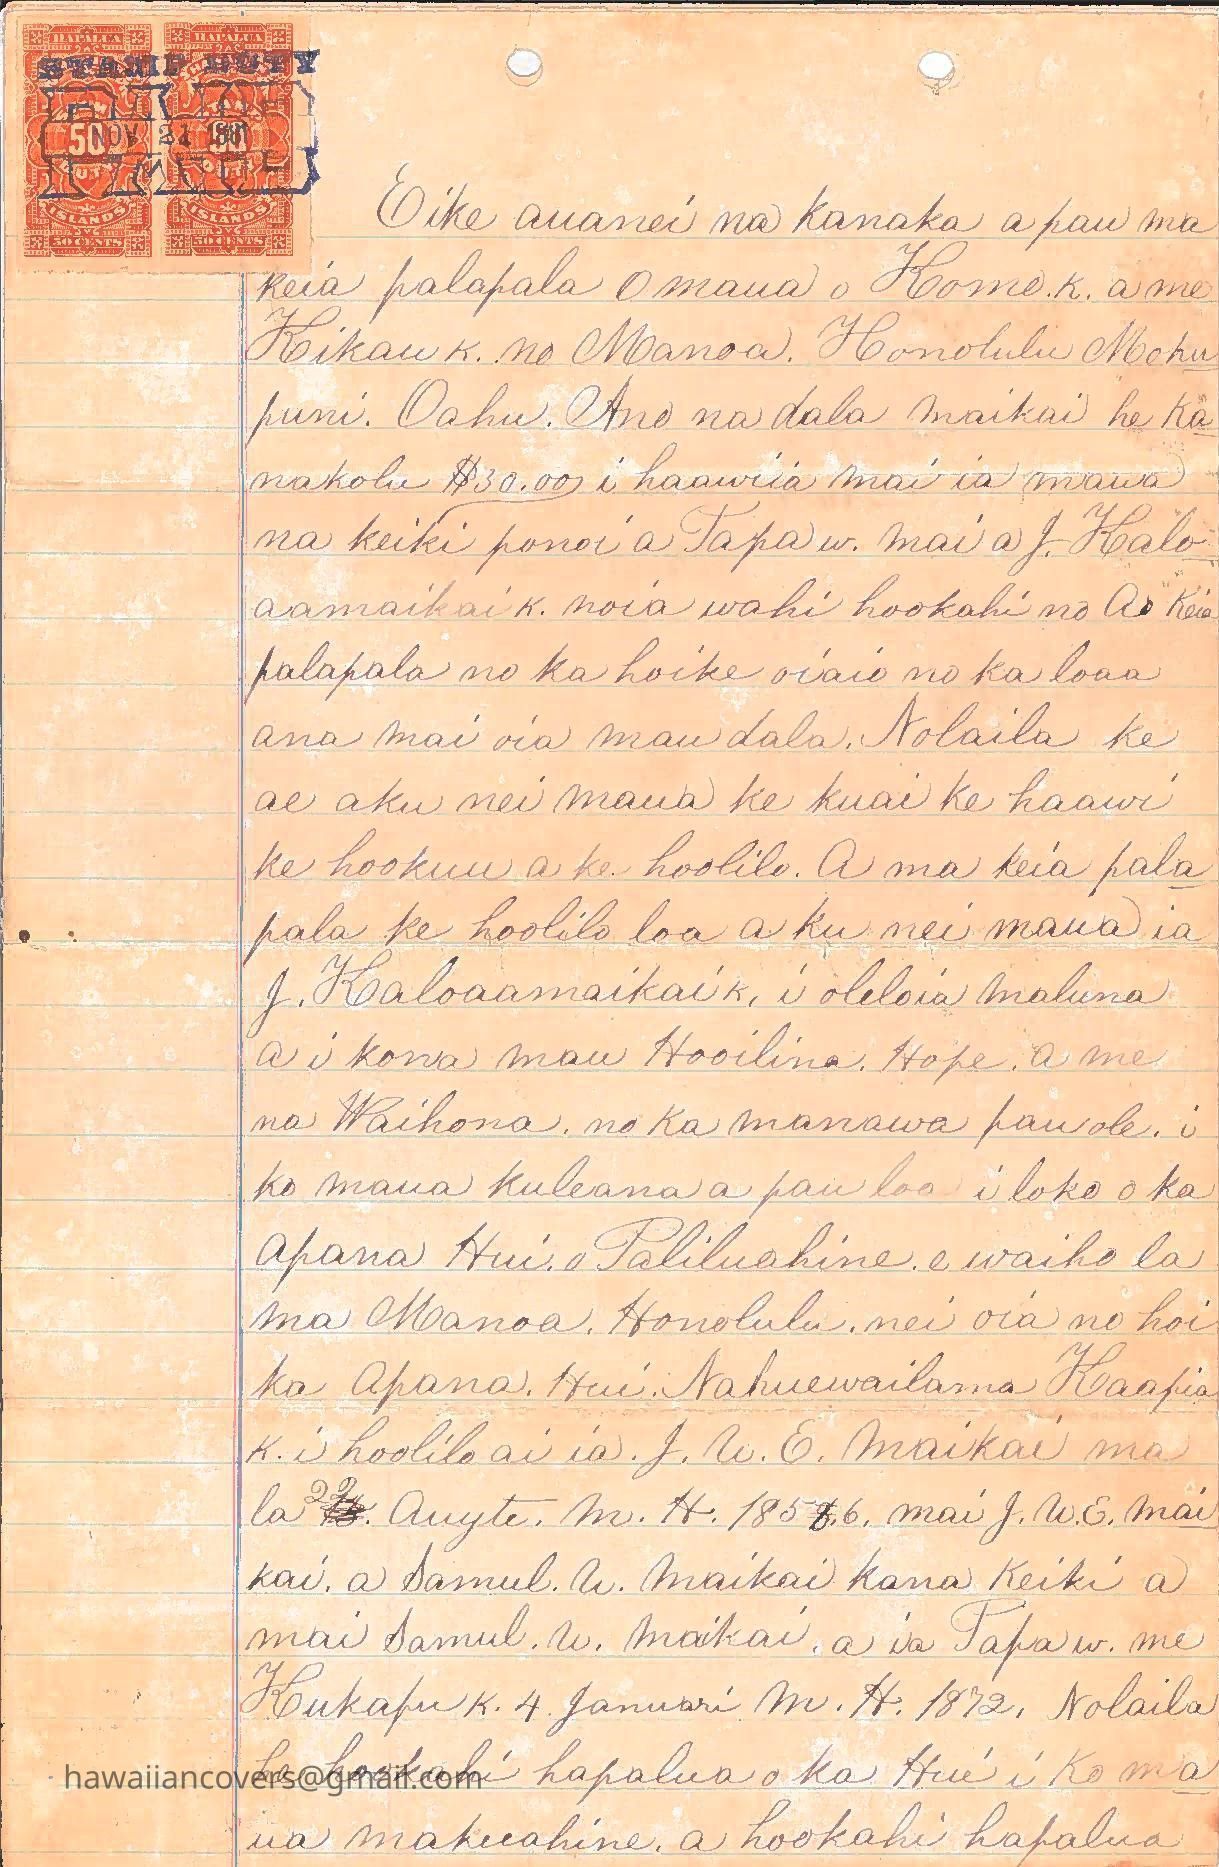 HAPALUA HAPALUA
STAMP DUTY
50 NOV 21 1881 50
DUTY DUTY
ISLANDS ISLANDS
50 CENTS 50 CENTS
Eike auanei na kanaka a pau ma
keia palapala O maua o Komo. k. a me
Kikau k. no Manoa. Honolulu Moku
puni. Oahu. Ano na dala maikai he ka
nakolu $30.00 i haawiia mai ia maua
na keiki ponoi a Tapa w. mai a J. Kalo
aamaikai k. noia wahi hookahi no Ao keia
palapala no ka hoike oiaio no ka loaa
ana mai oia mau dala. Nolaila ke
ae aku nei maua ke kuai ke haawi
ke hookuu a ke hoolilo. A ma keia pala
pala ke hoolilo loa a ku nei maua ia
J. Kaloaamaikai k, i oleloia maluna
a i kona mau Hooilina. Hope. a me
na Waihona. no ka manawa pau ole. i
ko maua kuleana a pau loa i loko o ka
Apana Hui. o Paliluahine. e waiho la
ma Manoa. Honolulu. nei oia no hoi
ka Apana. Hui. Nahuewailama Kaapia
k. i hoolilo ai ia. J. U. E. Maikai ma
la 22. Augte. M. H. 1856. mai J. U. E. Mai
kai. a Samul. U. Maikai kana Keiki a
mai Samul. U. Maikai. a ia Tapa w. me
Kukapu k. 4 Januari M. H. 1872. Nolaila
he hookahi hapalua o ka Hui i ko ma
hawaiiancovers@gmail.com
ua makuahine. a hookahi hapalua